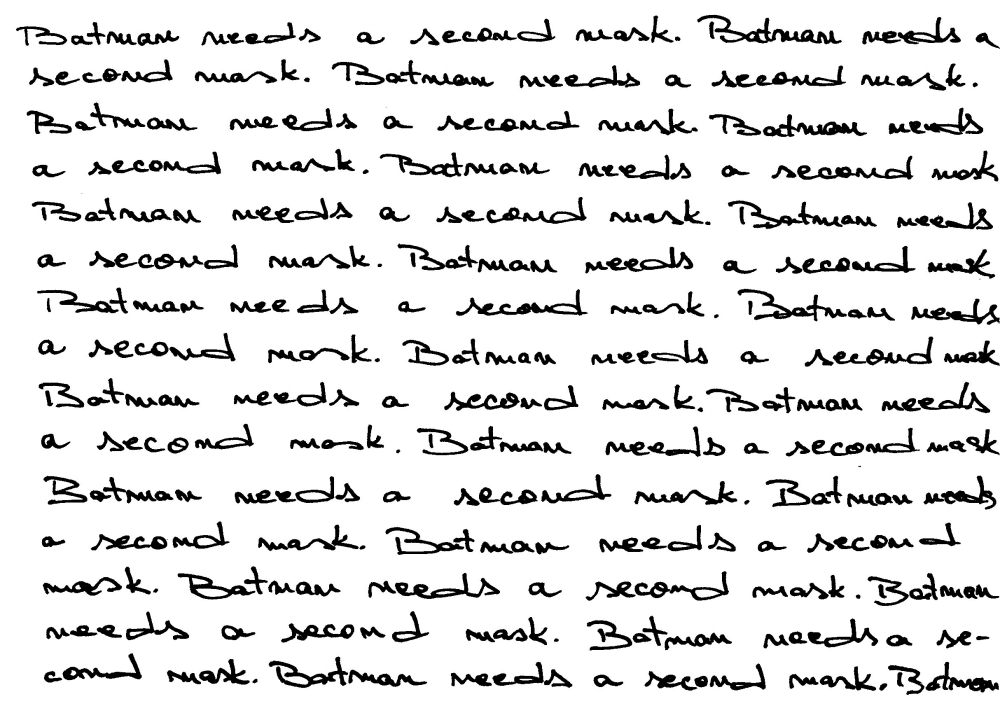 Batman needs a second mask. Batman needs a
second mask. Batman needs a second mask.
Batman needs a second mask. Batman needs
a second mask. Batman needs a second mask
Batman needs a second mask. Batman needs
a second mask. Batman needs a second mask
Batman needs a second mask. Batman needs
a second mask. Batman needs a second mask
Batman needs a second mask. Batman needs
a second mask. Batman needs a second mask
Batman needs a second mask. Batman needs
a second mask. Batman needs a second
mask. Batman needs a second mask. Batman
needs a second mask. Batman needs a se-
cond mask. Batman needs a second mask. Batman